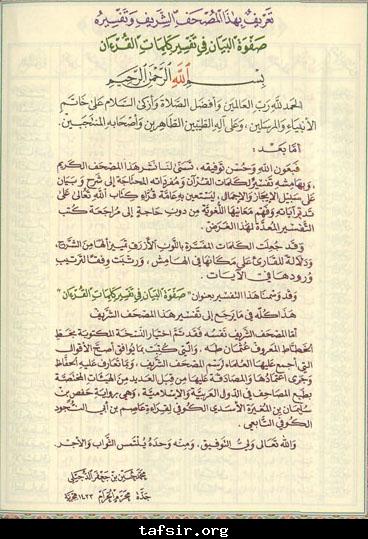 تعريف بهذا المصحف الشريف وتفسيره
صفوة البيان في تفسير كلمات القرءان
بسم الله الرحمن الرحيم
الحمد لله رب العالمين وأفضل الصلاة وأزكى السلام على خاتم
الأنبياء والمرسلين، وعلى آله الطيبين الطاهرين وأصحابه المنتجبين
أما بعد:
فبعون الله وحسن توفيقه، تسنى لنا نشر هذا المصحف الكريم
وبهامشه تفسير لكلمات القرآن ومفرداته المحتاجة إلى شرح وبيان
على سبيل الإيجاز والإجمال، ليستعين به عامة قراء كتاب الله تعالى على
تدبر آياته وفهم معانيها اللغوية من دون حاجة إلى مراجعة كتب
التفسير المعدة لهذا الغرض.
وقد جعلت الكلمات المفسرة باللون الأزرق تمييزا لها من الشرح،
ودلالة للقارئ على مكانها في الهامش، ورتبت وفقا لترتيب
ورودها في الآيات.
وقد وسمنا هذا التفسير بعنوان "صفوة البيان في تفسير كلمات القرءان"
هذا كله فيما يرجع إلى تفسير هذا المصحف الشريف
أما المصحف الشريف نفسه فقد تم اختيار النسخة المكتوبة بخط
الخطاط المعروف عثمان طه، والتي كتبت بما يوافق أصح الأقوال
التي أجمع عليها العلماء لرسم المصحف الشريف، وبما تعارف عليه الحفاظ
وجرى اعتمادها والمصادقة عليها من قبل العديد من الهيئات المختصة
بطبع المصاحف في الدول العربية والإسلامية، وهي برواية حفص بن
سليمان بن المغيرة الأسدي الكوفي لقراءة عاصم بن أبي النجود
الكوفي التابعي.
والله تعالى ولي التوفيق، ومنه وحده يلتمس الثواب والأجر.
محمد حسين بن جعفر
جدة محرم الحرام ١٤٢٣ هجرية
tafsir.org